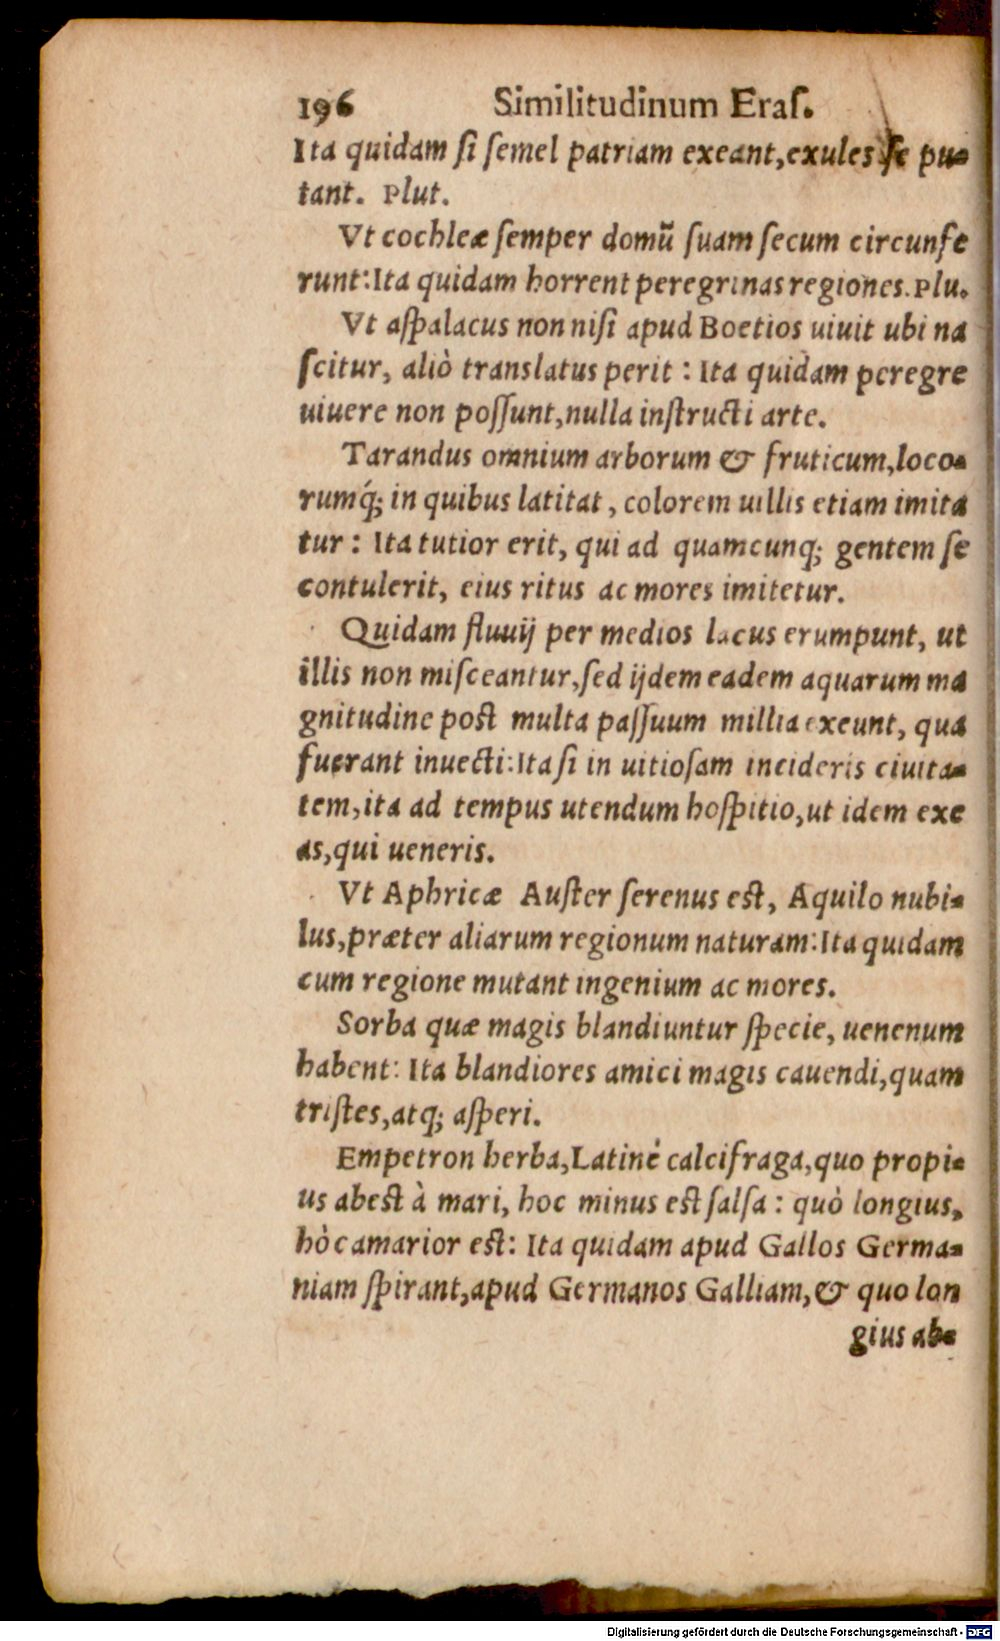 196 Similitudinum Eraſ.
Ita quidam ſi ſemel patriam exeant, exules ſe pu-
tant. Plut.
Vt cochleæ ſemper domũ ſuam ſecum circunfe
runt: Ita quidam horrent peregrinas regiones. Plu.
Vt aſpalacus non niſi apud Boetios uiuit ubi na
ſcitur, aliò translatus perit: Ita quidam peregre
uiuere non poſſunt, nulla inſtructi arte.
Tarandus omnium arborum & fruticum, loco-
rumq́; in quibus latitat, colorem uillis etiam imita
tur: Ita tutior erit, qui ad quamcunq; gentem ſe
contulerit, eius ritus ac mores imitetur.
Quidam fluuij per medios lacus erumpunt, ut
illis non miſceantur, ſed ijdem eadem aquarum ma
gnitudine poſt multa paſſuum millia exeunt, qua
fuerant inuecti: Ita ſi in uitioſam incideris ciuita-
tem, ita ad tempus utendum hoſpitio, ut idem exe
as, qui ueneris.
Vt Aphricæ Auſter ſerenus eſt, Aquilo nubi-
lus, præter aliarum regionum naturam: Ita quidam
cum regione mutant ingenium ac mores.
Sorba quæ magis blandiuntur ſpecie, uenenum
habent: Ita blandiores amici magis cauendi, quam
triſtes, atq; aſperi.
Empetron herba, Latinè calcifraga, quo propi-
us abeſt à mari, hoc minus eſt ſalſa: quò longius,
hòc amarior eſt: Ita quidam apud Gallos Germa-
niam ſpirant, apud Germanos Galliam, & quo lon
gius abe
Digitalisierung gefördert durch die Deutsche Forschungsgemeinschaft - DFG